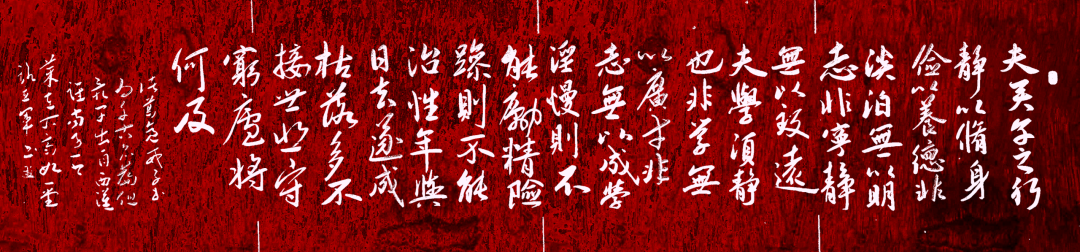 夫君子之行
静以脩身
儉以養德非
淡泊無以明
志非寧静
無以致遠
夫學須静
也非学無
以廣才非
志無以成學
淫慢則不
能勵精險
躁則不能
治性年與
日去遂成
枯落多不
接世悲守
窮廬將
何及